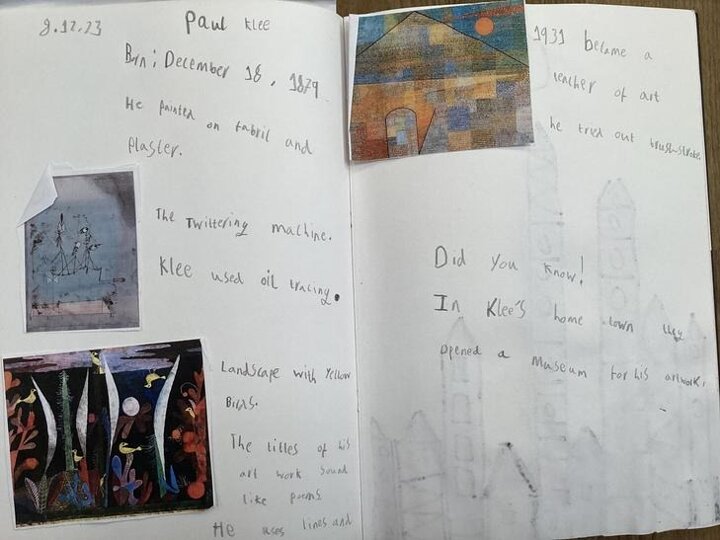 9.12.23
Paul Klee
Born: December 18, 1879
He painted on fabric and
Plaster.
The Twittering machine.
Klee used oil tracing.
Landscape with Yellow
Birds.
The titles of his
art work sound
like poems
He uses lines and
1931 became a
teacher of art
he tried out brush-stroke.
Did you know!
In Klee's home town they
opened a Museum for his artwork.